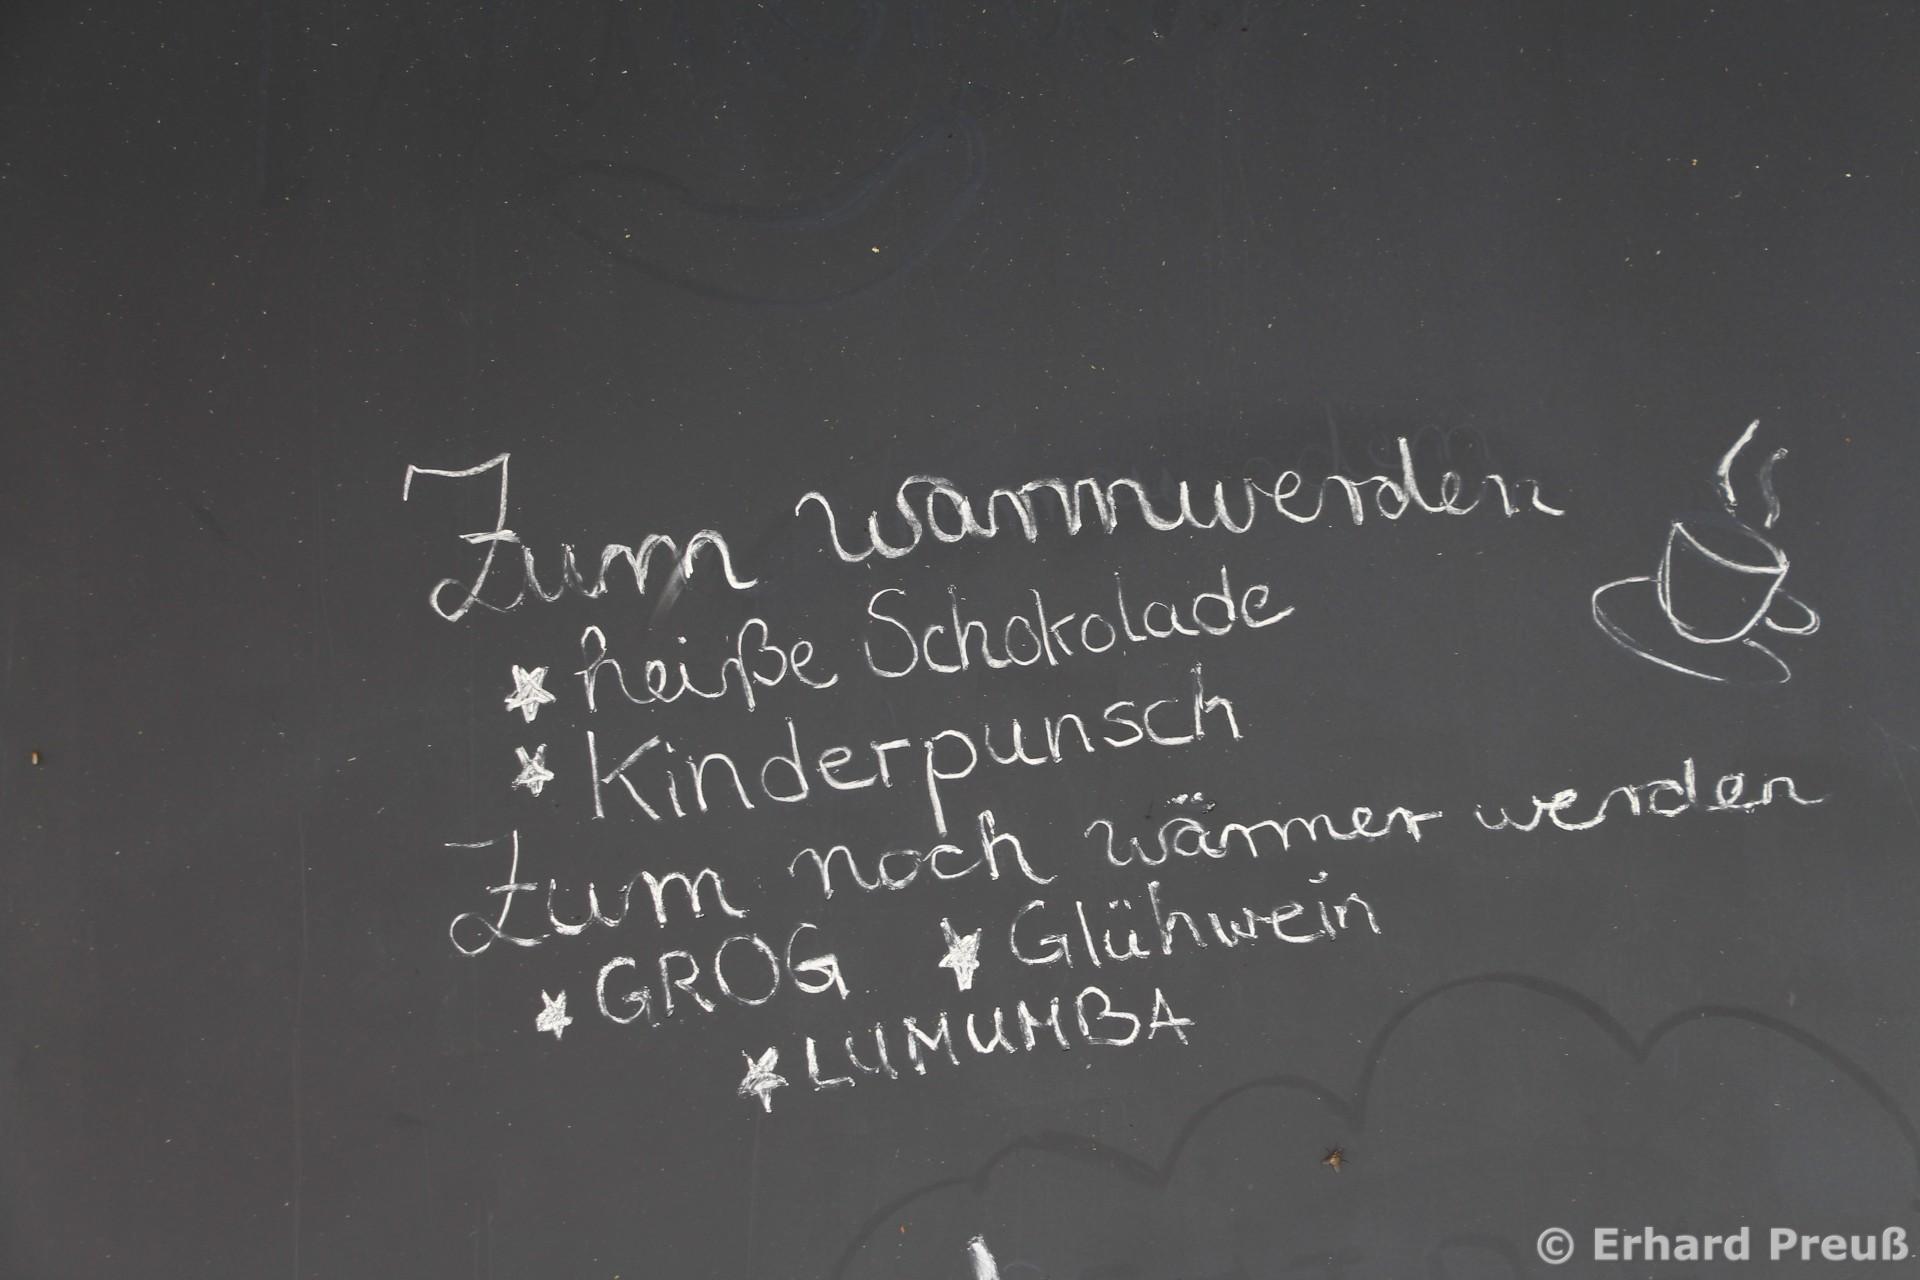 Zum warmwerden
* heiße Schokolade
* Kinderpunsch
Zum noch wärmer werden
* GROG * Glühwein
* LUMUMBA
© Erhard Preuß